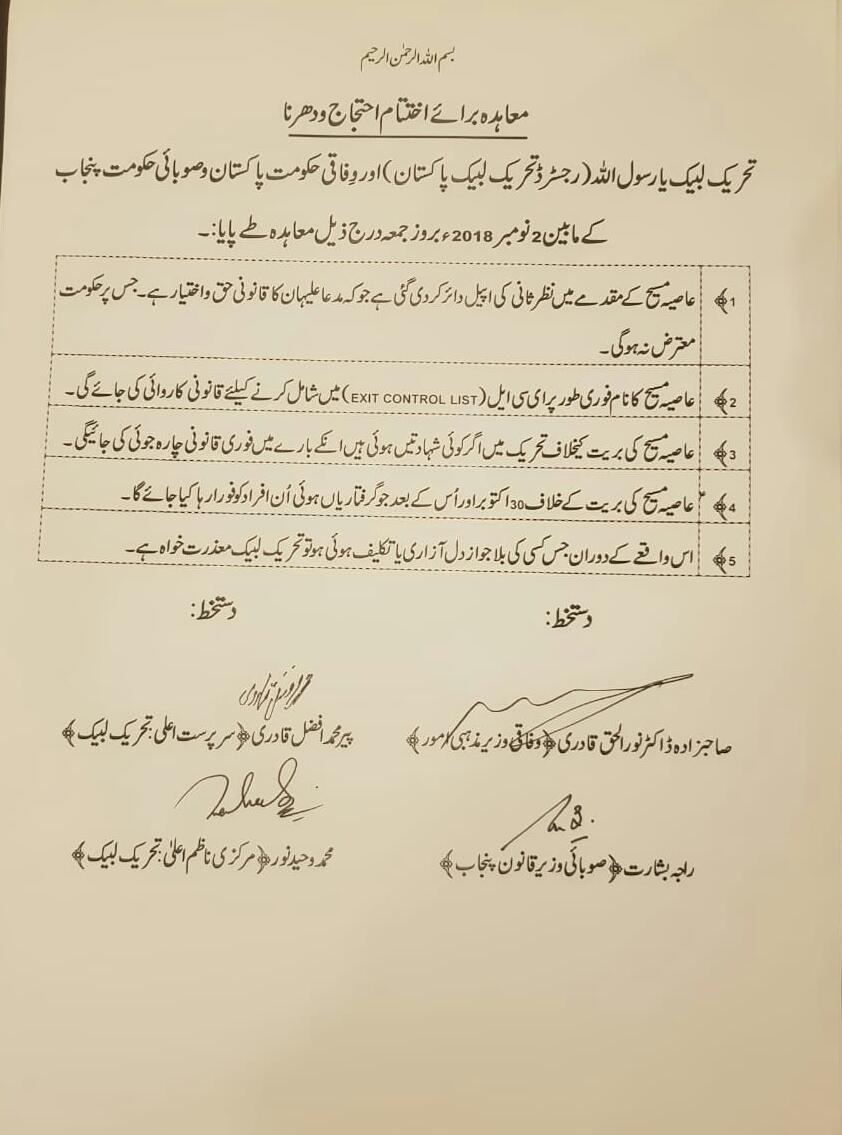 بسم اللہ الرحمٰن الرحیم
معاہدہ برائے اختتام احتجاج و دھرنا
تحریک لبیک یا رسول اللہ (رجسٹرڈ تحریک لبیک پاکستان) اور وفاقی حکومت پاکستان و صوبائی حکومت پنجاب
کے مابین 2 نومبر 2018ء بروز جمعہ درج ذیل معاہدہ طے پایا:۔
1﴾ عاصیہ مسیح کے مقدمے میں نظر ثانی کی اپیل دائر کر دی گئی ہے جو کہ مدعا علیہان کا قانونی حق و اختیار ہے۔ جس پر حکومت
معترض نہ ہوگی۔
2﴾ عاصیہ مسیح کا نام فوری طور پر ای سی ایل (EXIT CONTROL LIST) میں شامل کرنے کیلئے قانونی کاروائی کی جائے گی۔
3﴾ عاصیہ مسیح کی بریت کیخلاف تحریک میں اگر کوئی شہادتیں ہوئی ہیں انکے بارے میں فوری قانونی چارہ جوئی کی جائیگی۔
4﴾ عاصیہ مسیح کی بریت کے خلاف 30 اکتوبر اور اُس کے بعد جو گرفتاریاں ہوئی اُن افراد کو فورا رہا کیا جائے گا۔
5﴾ اس واقعے کے دوران جس کسی کی بلا جواز دل آزاری یا تکلیف ہوئی ہو تو تحریک لبیک معذرت خواہ ہے۔
دستخط: دستخط:
صاحبزادہ ڈاکٹر نور الحق قادری ﴿وفاقی وزیر مذہبی امور﴾ پیر محمد افضل قادری ﴿سرپرست اعلی: تحریک لبیک﴾
راجہ بشارت ﴿صوبائی وزیر قانون پنجاب﴾ محمد وحید نور ﴿مرکزی ناظم اعلیٰ: تحریک لبیک﴾